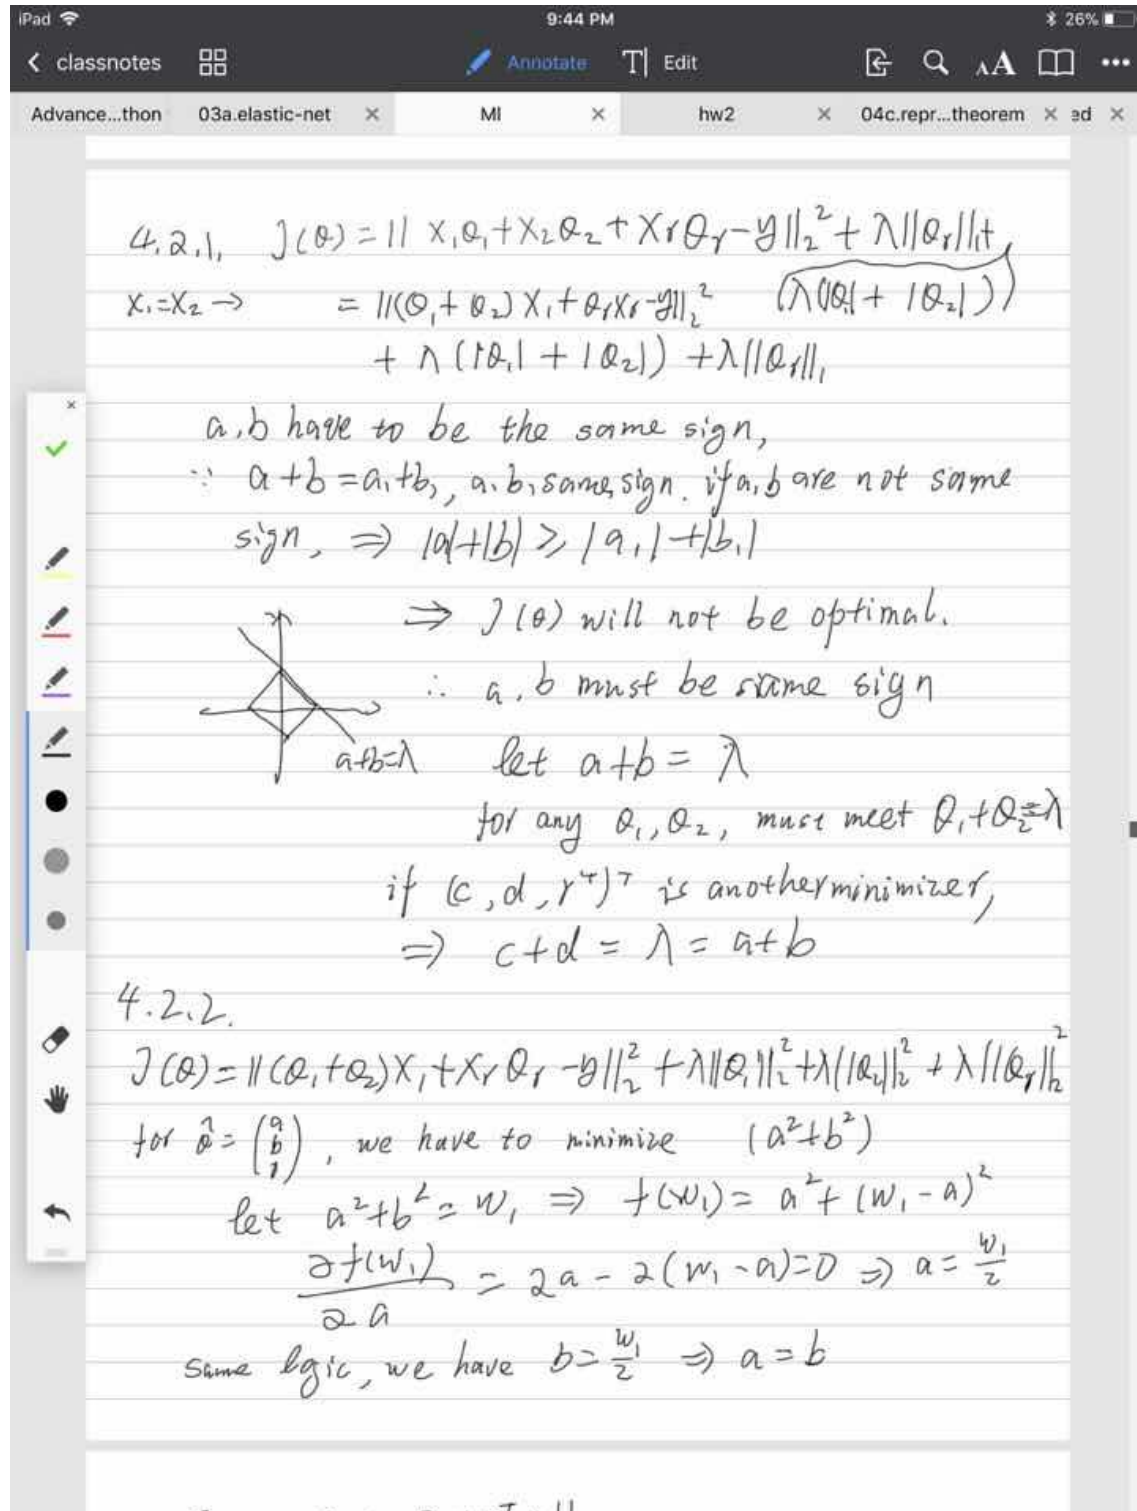 iPad 9:44 PM 26%
classnotes Annotate T Edit AA
Advance...thon 03a.elastic-net × MI × hw2 × 04c.repr...theorem × ed ×
4.2.1, J(θ) = || X₁θ₁+X₂θ₂+Xrθr-y||₂² + λ||θr||₁+
X₁=X₂ → = ||(θ₁+θ₂)X₁+θrXr-y||₂² (λ(|θ₁|+|θ₂|))
+ λ(|θ₁|+|θ₂|) +λ||θr||₁
a,b have to be the same sign,
∵ a+b=a₁+b₁, a₁b₁ same sign. if a,b are not same
sign, ⇒ |a|+|b| ≥ |a₁|+|b₁|
⇒ J(θ) will not be optimal.
∴ a,b must be same sign
a+b=λ let a+b = λ
for any θ₁,θ₂, must meet θ₁+θ₂=λ
if (c,d,rᵀ)ᵀ is another minimizer,
⇒ c+d = λ = a+b
4.2.2.
J(θ)=||(θ₁+θ₂)X₁+Xrθr-y||₂²+λ||θ₁||₂²+λ||θ₂||₂²+λ||θr||₂²
for θ̂=(a b r), we have to minimize (a²+b²)
let a²+b²=w₁ ⇒ f(w₁)=a²+(w₁-a)²
∂f(w₁)/∂a = 2a-2(w₁-a)=0 ⇒ a=w₁/2
same logic, we have b=w₁/2 ⇒ a=b